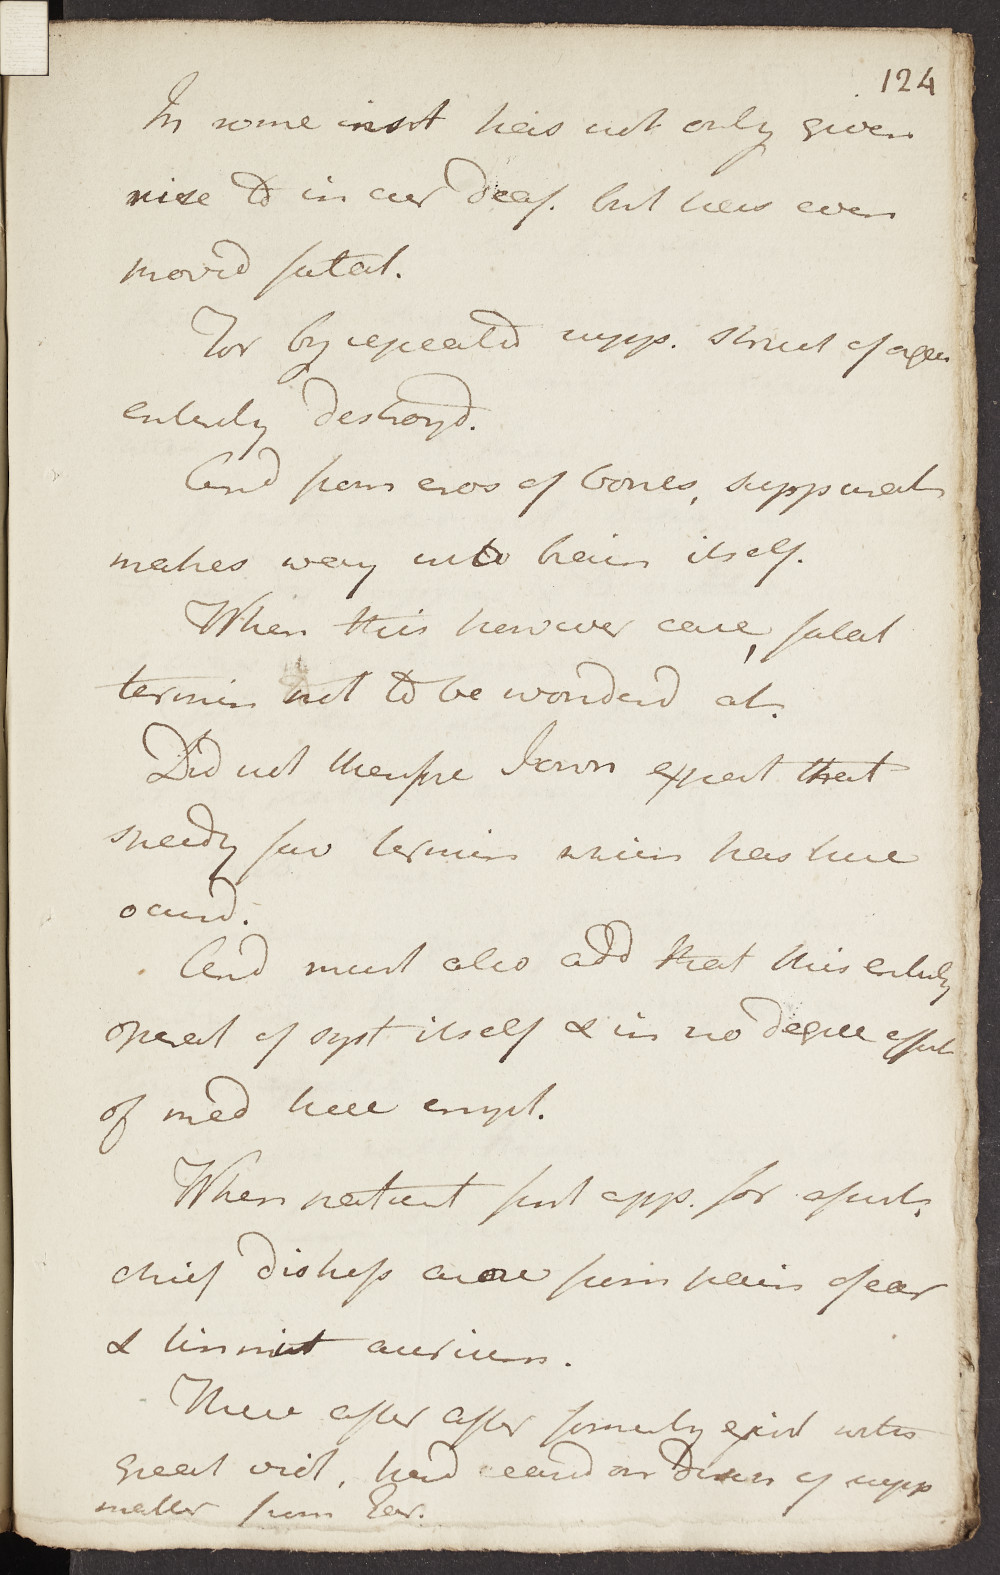 124
In some inst has not only given
rise to incur deaf. but has even
prov'd fatal.
For by repeated supp. struct of organ
entirely destroyd.
And from eros of bones, suppurat
makes way into brain itself.
When this however case, fatal
termin not to be wonderd at.
Did not therefore I own expect that
speedy fav termin which has here
occurd.
And must also add that this entirely
operat of syst itself & in no degree effect
of med here empt.
When patient first app. for assist,
chief distress arose from pain of ear
& tinnit aurium.
These after after formerly exist with
great viol, had on of supp
matter from Ear.